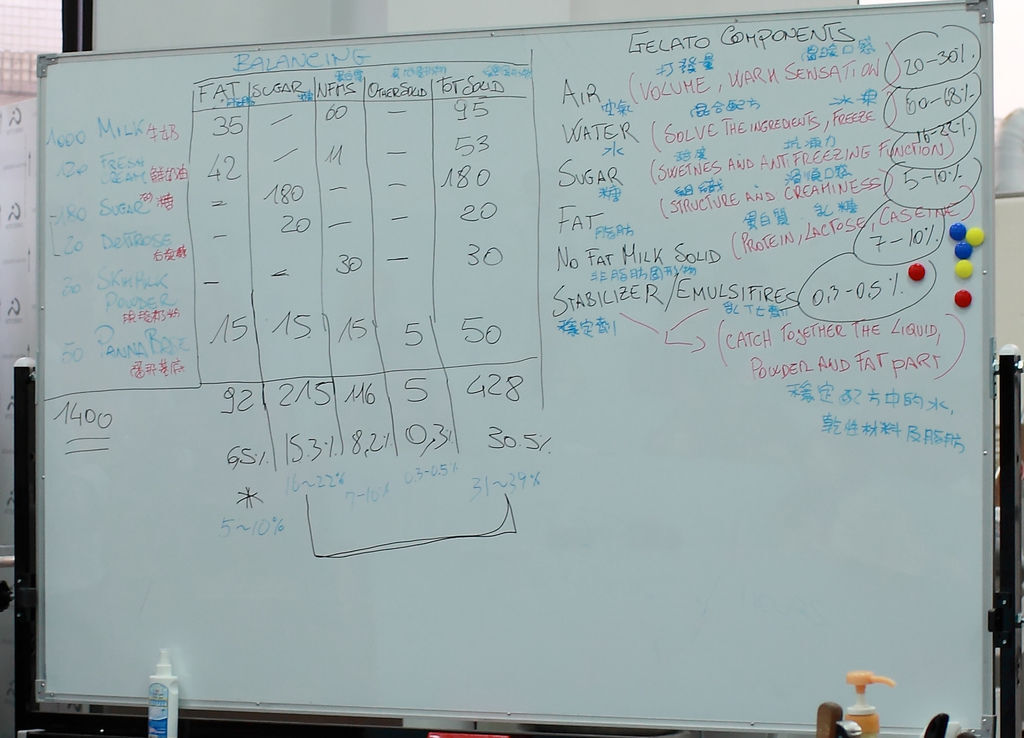 BALANCING
FAT 脂肪 SUGAR 糖 NFMS 蛋白質 OTHER SOLID TOT SOLID
1000 MILK 牛奶 35 - 60 - 95
120 FRESH CREAM 鮮奶油 42 - 11 - 53
180 SUGAR 砂糖 - 180 - - 180
20 DEXTROSE - 20 - - 20
30 SKIM MILK POWDER 脫脂奶粉 - - 30 - 30
50 PANNA BASE 15 15 15 5 50
1400 92 215 116 5 428
6,5% 15.3% 8,2% 0,3% 30.5%
* 16~22% 7-10% 0.3-0.5% 31~39%
5~10%
GELATO COMPONENTS
打發量 溫暖口感
AIR 空氣 (VOLUME, WARM SENSATION) 20-30%
混合配方 冰凍
WATER 水 (SOLVE THE INGREDIENTS, FREEZE 60-68%
甜度 抗凍力
SUGAR 糖 (SWETNES AND ANTIFREEZING FUNCTION) 16-22%
組織 滑順口感
FAT 脂肪 (STRUCTURE AND CREAMINESS 5-10%
蛋白質 乳糖
NO FAT MILK SOLID 非脂肪固形物 (PROTEIN, LACTOSE, CASEINE) 7-10%
STABILIZER/EMULSIFIRES 0,3-0,5%
穩定劑 乳化劑
(CATCH TOGETHER THE LIQUID,
POWDER AND FAT PART)
穩定配方中的水,
乾性材料及脂肪